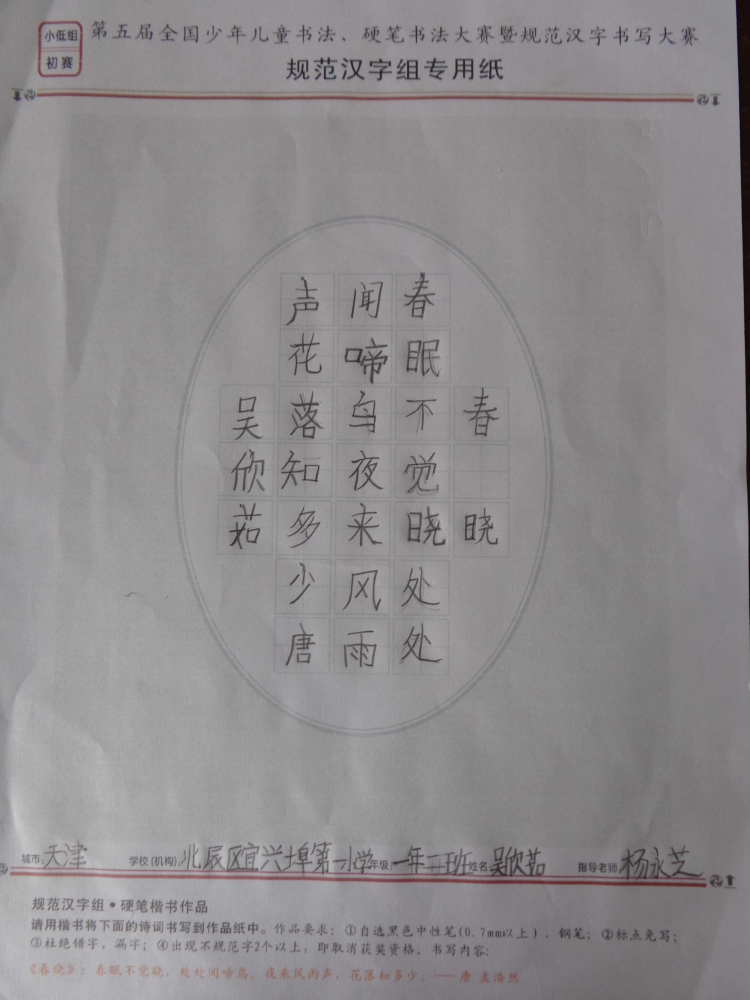 小低组
初赛
第五届全国少年儿童书法、硬笔书法大赛暨规范汉字书写大赛
规范汉字组专用纸
春晓
春眠不觉晓处处
闻啼鸟夜来风雨
声花落知多少唐
吴欣茹
城市:天津 学校(机构):北辰区宜兴埠第一小学 年级:一年二班 姓名:吴欣茹 指导老师:杨永芝
规范汉字组•硬笔楷书作品
请用楷书将下面的诗词书写到作品纸中。作品要求：①自选黑色中性笔(0.7mm以上)、钢笔；②标点免写；
③杜绝错字、漏字；④出现不规范字2个以上，即取消获奖资格。书写内容：
《春晓》：春眠不觉晓，处处闻啼鸟。夜来风雨声，花落知多少。——唐 孟浩然